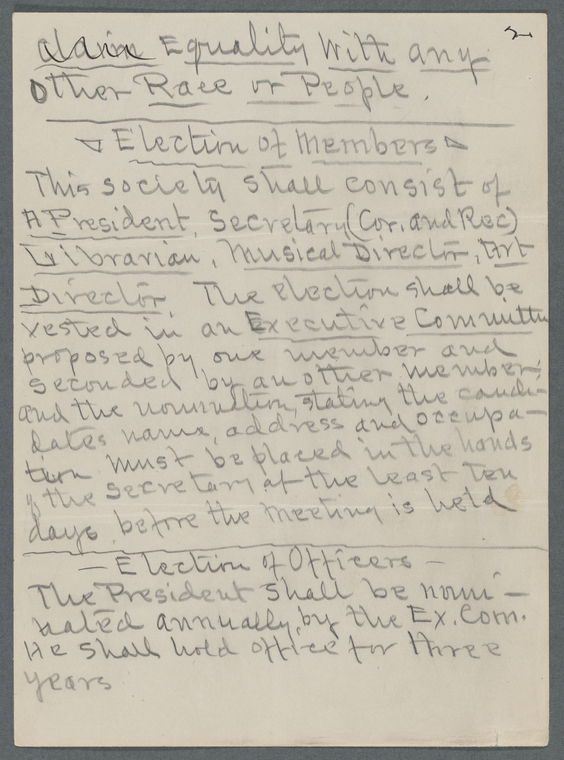 2
claim Equality With any
Other Race or People.
Election of Members
This society shall consist of
A President, Secretary (Cor. and Rec)
Librarian, Musical Director, Art
Director. The election shall be
vested in an Executive Committee
proposed by one member and
seconded by an other member,
and the nomination, stating the candi-
dates name, address and occupa-
tion must be placed in the hands
of the Secretary at the least ten
days before the meeting is held
— Election of Officers —
The President shall be nomi-
nated annually, by the Ex. Com.
He shall hold office for three
years